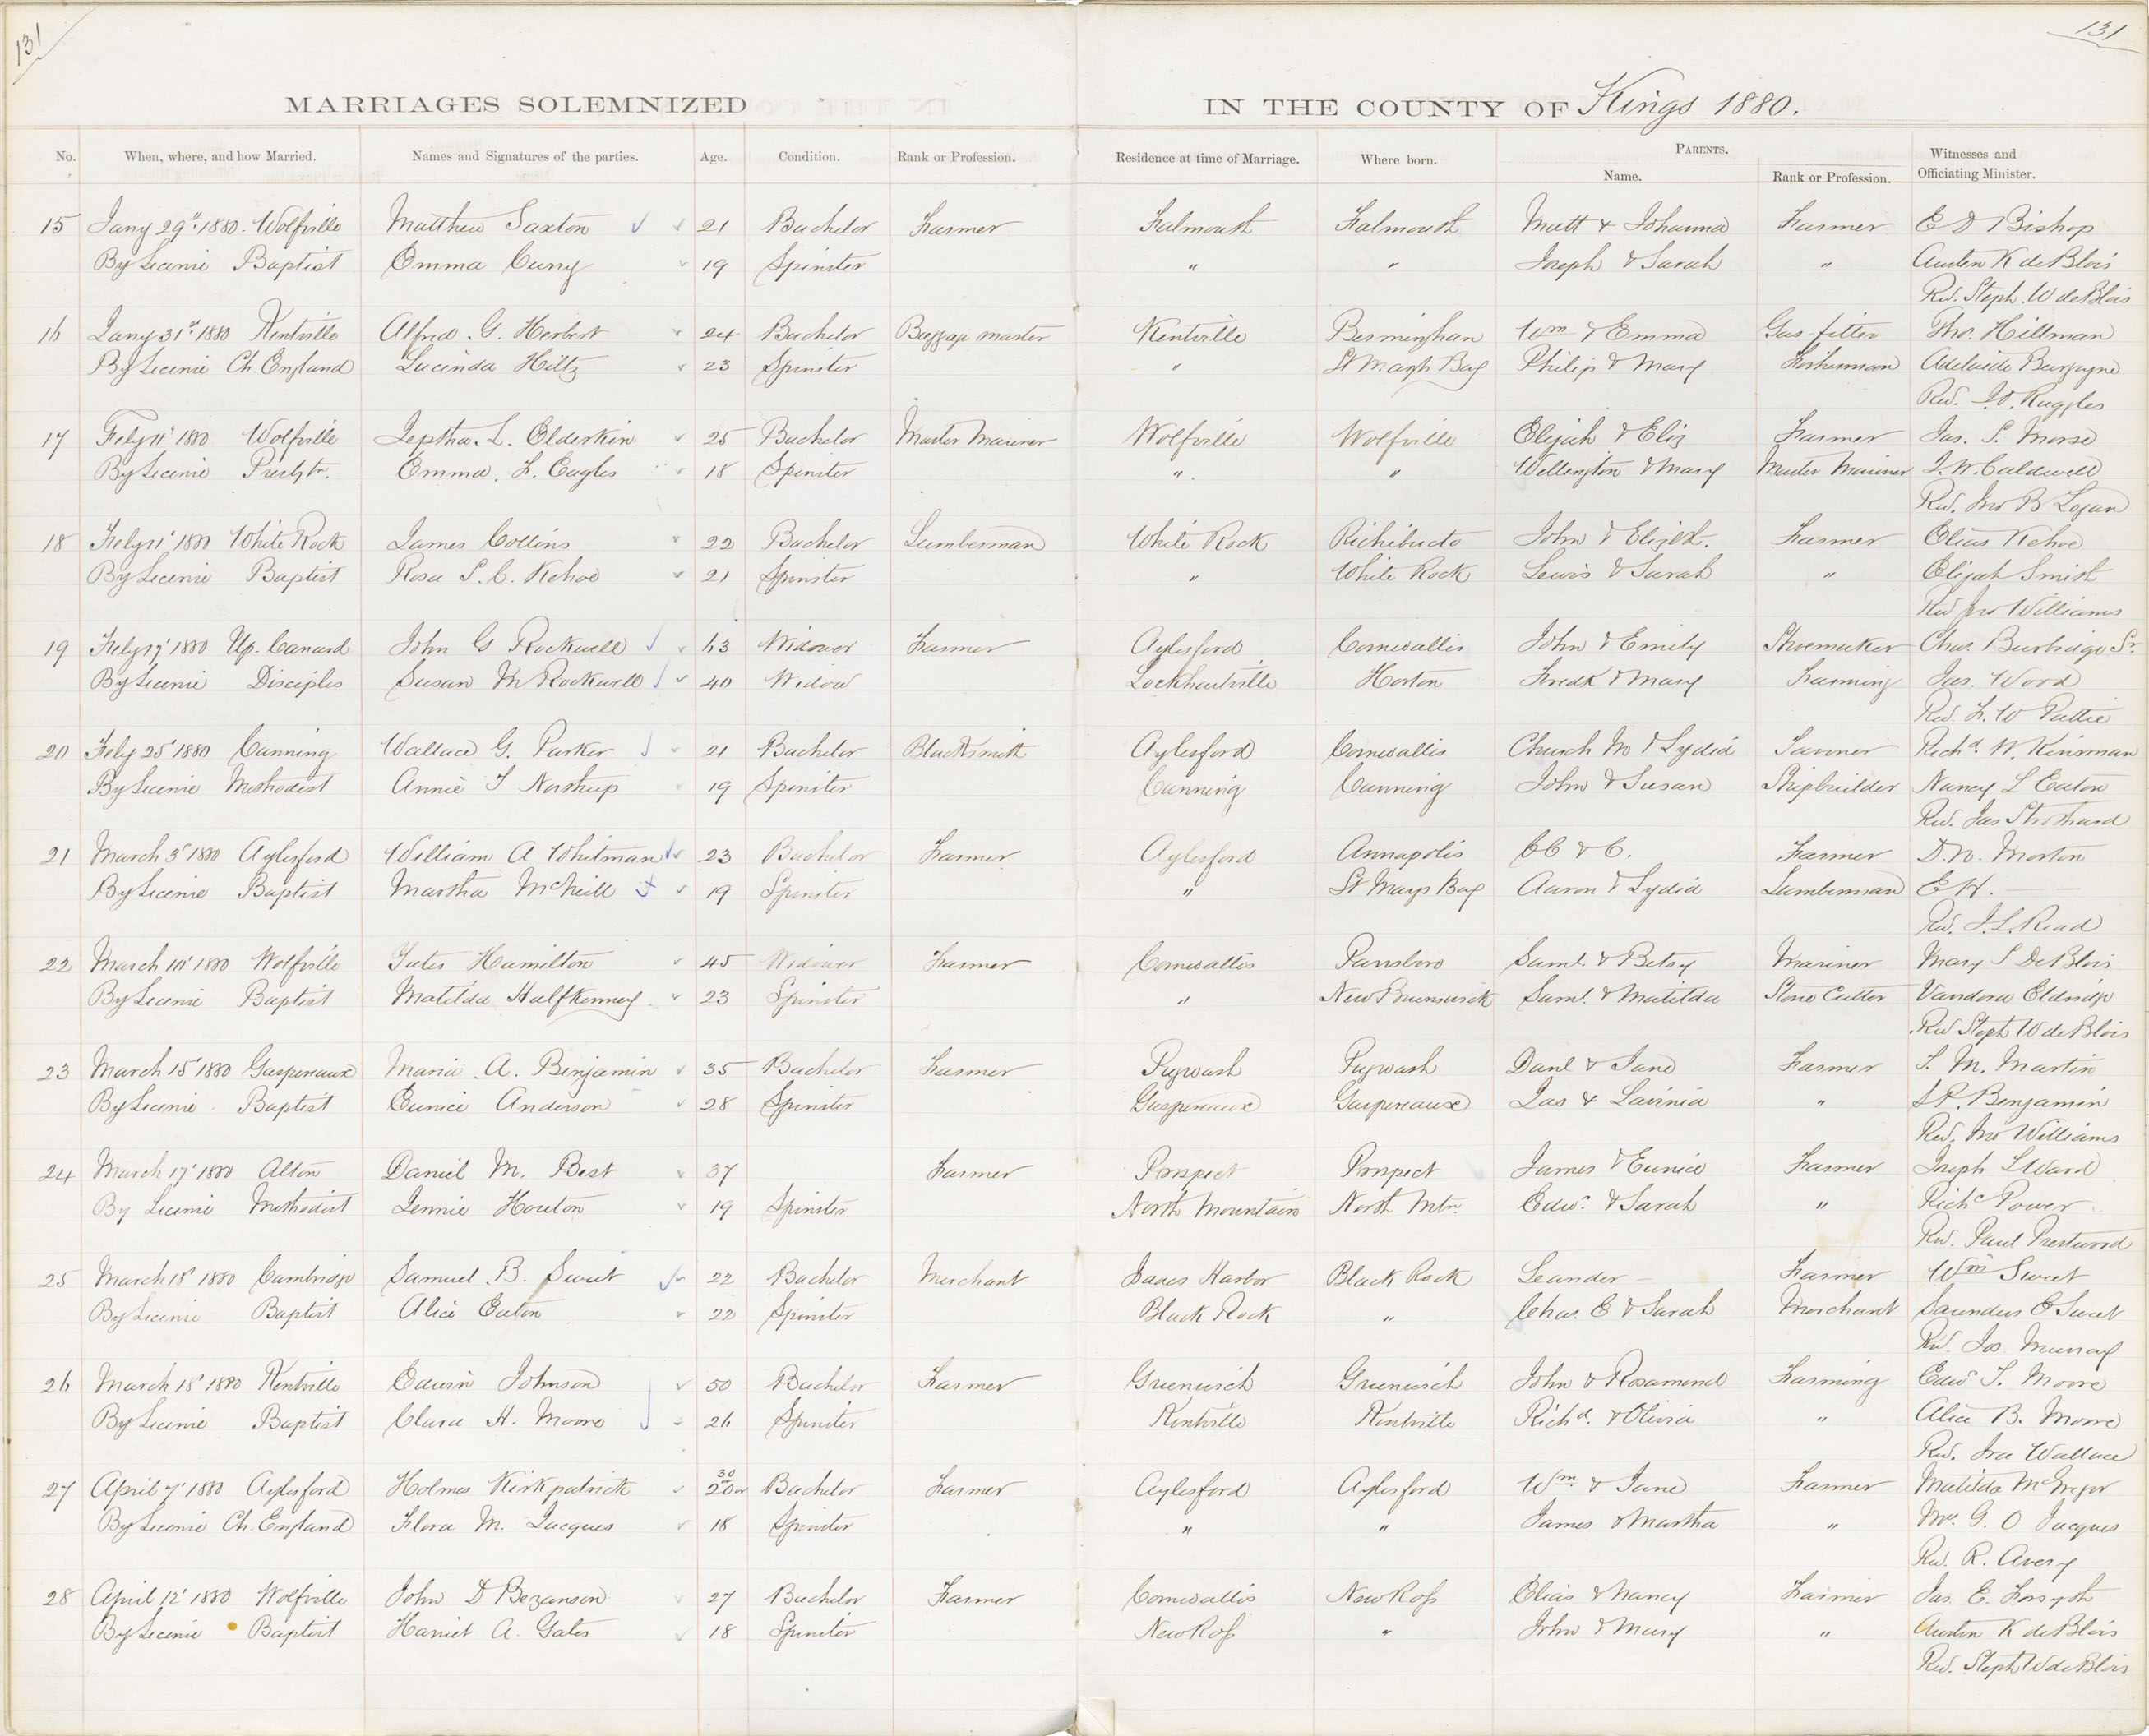 131
131
MARRIAGES SOLEMNIZED IN THE COUNTY OF Kings 1880.
No. When, where, and how Married. Names and Signatures of the parties. Age. Condition. Rank or Profession. Residence at time of Marriage. Where born. PARENTS. Name. Rank or Profession. Witnesses and Officiating Minister.
15 Jany 29" 1880. Wolfville Matthew Saxton 21 Bachelor Farmer Falmouth Falmouth Matt & Johanna Farmer E D Bishop
By Licence Baptist Emma Curry 19 Spinster " " Joseph & Sarah " Austen K de Blois
Rev. Steph. W de Blois
16 Jany 31st 1880 Kentville Alfred G. Herbert 24 Bachelor Baggage master Kentville Bermingham Wm & Emma Gas-fitter Tho. Hillman
By Licence Ch. England Lucinda Hiltz 23 Spinster " St Margts Bay Philip & Mary Fisherman Adelaide Burgoyne
Rev. J.O. Ruggles
17 Feby 11' 1880 Wolfville Jeptha. L. Elderkin 25 Bachelor Master Mariner Wolfville Wolfville Elijah & Eliz Farmer Jas. S. Morse
By Licence Presbtn. Emma. F. Eagles 18 Spinster " " Wellington & Mary Master Mariner J. W. Caldwell
Rev. Jno B Logan
18 Feby 11' 1880 White Rock James Collins 22 Bachelor Lumberman White Rock Richibucto John & Elizbt. Farmer Elias Kehoe
By Licence Baptist Rosa S. C. Kehoe 21 Spinster " White Rock Lewis & Sarah " Elijah Smith
Rev Jno Williams
19 Feby 17' 1880 Up. Canard John G Rockwell 43 Widower Farmer Aylesford Cornwallis John & Emily Shoemaker Chas. Burbidge Sr.
By Licence Disciples Susan M Rockwell 40 Widow Lockhartville Horton Fredk & Mary Farming Jas. Wood
Rev. F. W Pattie
20 Feby 25' 1880 Canning Wallace G. Parker 21 Bachelor Blacksmith Aylesford Cornwallis Church M & Lydia Farmer Richd. W. Kinsman
By Licence Methodist Annie T Northup 19 Spinster Canning Canning John & Susan Shipbuilder Nancy L Eaton
Rev. Jas Strothard
21 March 3' 1880 Aylesford William A Whitman 23 Bachelor Farmer Aylesford Annapolis C C & C. Farmer D. N. Morton
By Licence Baptist Martha McNeill 19 Spinster " St Marys Bay Aaron & Lydia Lumberman E H. —
Rev. J. L. Read
22 March 10' 1880 Wolfville Yates Hamilton 45 Widower Farmer Cornwallis Parrsboro Saml. & Betsy Mariner Mary S De Blois
By Licence Baptist Matilda Halfkenney 23 Spinster " New Brunswick Saml. & Matilda Stone Cutter Vandora Eldridge
Rev Steph W de Blois
23 March 15' 1880 Gaspereaux Maria A. Benjamin 35 Bachelor Farmer Pugwash Pugwash Danl & Jane Farmer S. M. Martin
By Licence Baptist Eunice Anderson 28 Spinster Gaspereaux Gaspereaux Jas & Lavinia " S P. Benjamin
Rev. Jno Williams
24 March 17' 1880 Alton Daniel M. Best 37 Farmer Prospect Prospect James & Eunice Farmer Joseph L Ward
By Licence Methodist Jennie Houton 19 Spinster North Mountain North Mtn. Edwd. & Sarah " Richd Power
Rev. Paul Prestwood
25 March 18' 1880 Cambridge Samuel B. Sweet 22 Bachelor Merchant Isaacs Harbor Black Rock Leander — Farmer Wm Sweet
By Licence Baptist Alice Eaton 22 Spinster Black Rock " Chas. E & Sarah Merchant Saunders E Sweet
Rev. Jos Murray
26 March 18' 1880 Kentville Edwin Johnson 50 Bachelor Farmer Greenwich Greenwich John & Rosamond Farming Edwd T. Moore
By Licence Baptist Clara H. Moore 26 Spinster Kentville Kentville Richd. & Olivia " Alice B. Moore
Rev. Ira Wallace
27 April 7' 1880 Aylesford Holmes Kirkpatrick 20 or 30 Bachelor Farmer Aylesford Aylesford Wm & Jane Farmer Matilda McGregor
By Licence Ch. England Flora M. Jacques 18 Spinster " " James & Martha " Mr. G. O Jacques
Rev. R. Avery
28 April 12' 1880 Wolfville John D Bezanson 27 Bachelor Farmer Cornwallis New Ross Elias & Nancy Farmer Jas. E. Forsyth
By Licence Baptist Harriet A. Gates 18 Spinster New Ross " John & Mary " Austen K de Blois
Rev. Steph W de Blois